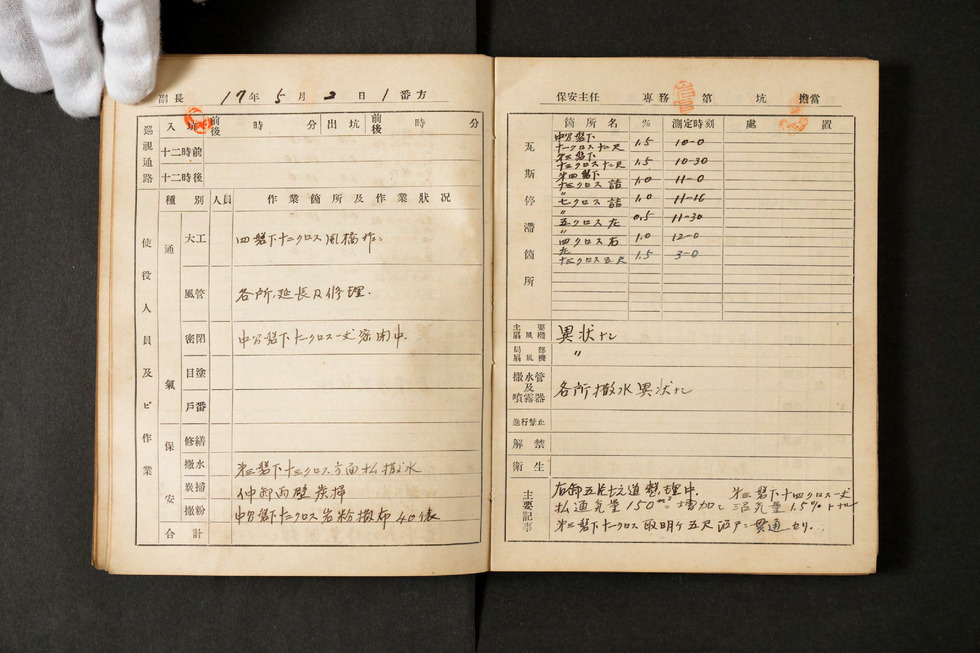 副長 17年5月2日1番方
巡視通路
入坑 前後 時 分 出坑 前後 時 分
十二時前
十二時後
使役人員及ビ作業
種別 人員 作業箇所及作業狀況
通氣
大工 四盤下十二クロス風橋作リ
風管 各所、延長及修理.
密閉 中分盤下十二クロス一丈密閉中.
目塗
戶番
保安
修繕
撒水 第三盤下十三クロス方面払撒水
炭掃 仲卸両壁炭掃
撒粉 中分盤下十二クロス岩粉撒布40俵
合計
保安主任 專務 第 坑 擔當
瓦斯停滯箇所
箇所名 % 測定時刻 處置
中分盤下
十一クロス 1.5 10-0
第三盤下
十三クロス 1.5 10-30
第四盤下
十三クロス詰 1.0 11-0
〃
七クロス詰 1.0 11-16
〃
五クロス左 0.5 11-30
〃
四クロス右 1.0 12-0
左
十三クロス五尺 1.5 3-0
主要扇風機 異状ナシ
局部扇風機 〃
撒水管及噴霧器 各所撒水異状ナシ
進行禁止
解禁
衛生
主要記事
右卸五片坑道整理中. 第三盤下十四クロス一丈
払通気量150m³ニ増加シ沼気量1.5%トナル
第三盤下十クロス取明ケ五尺沼アニ貫通セリ.